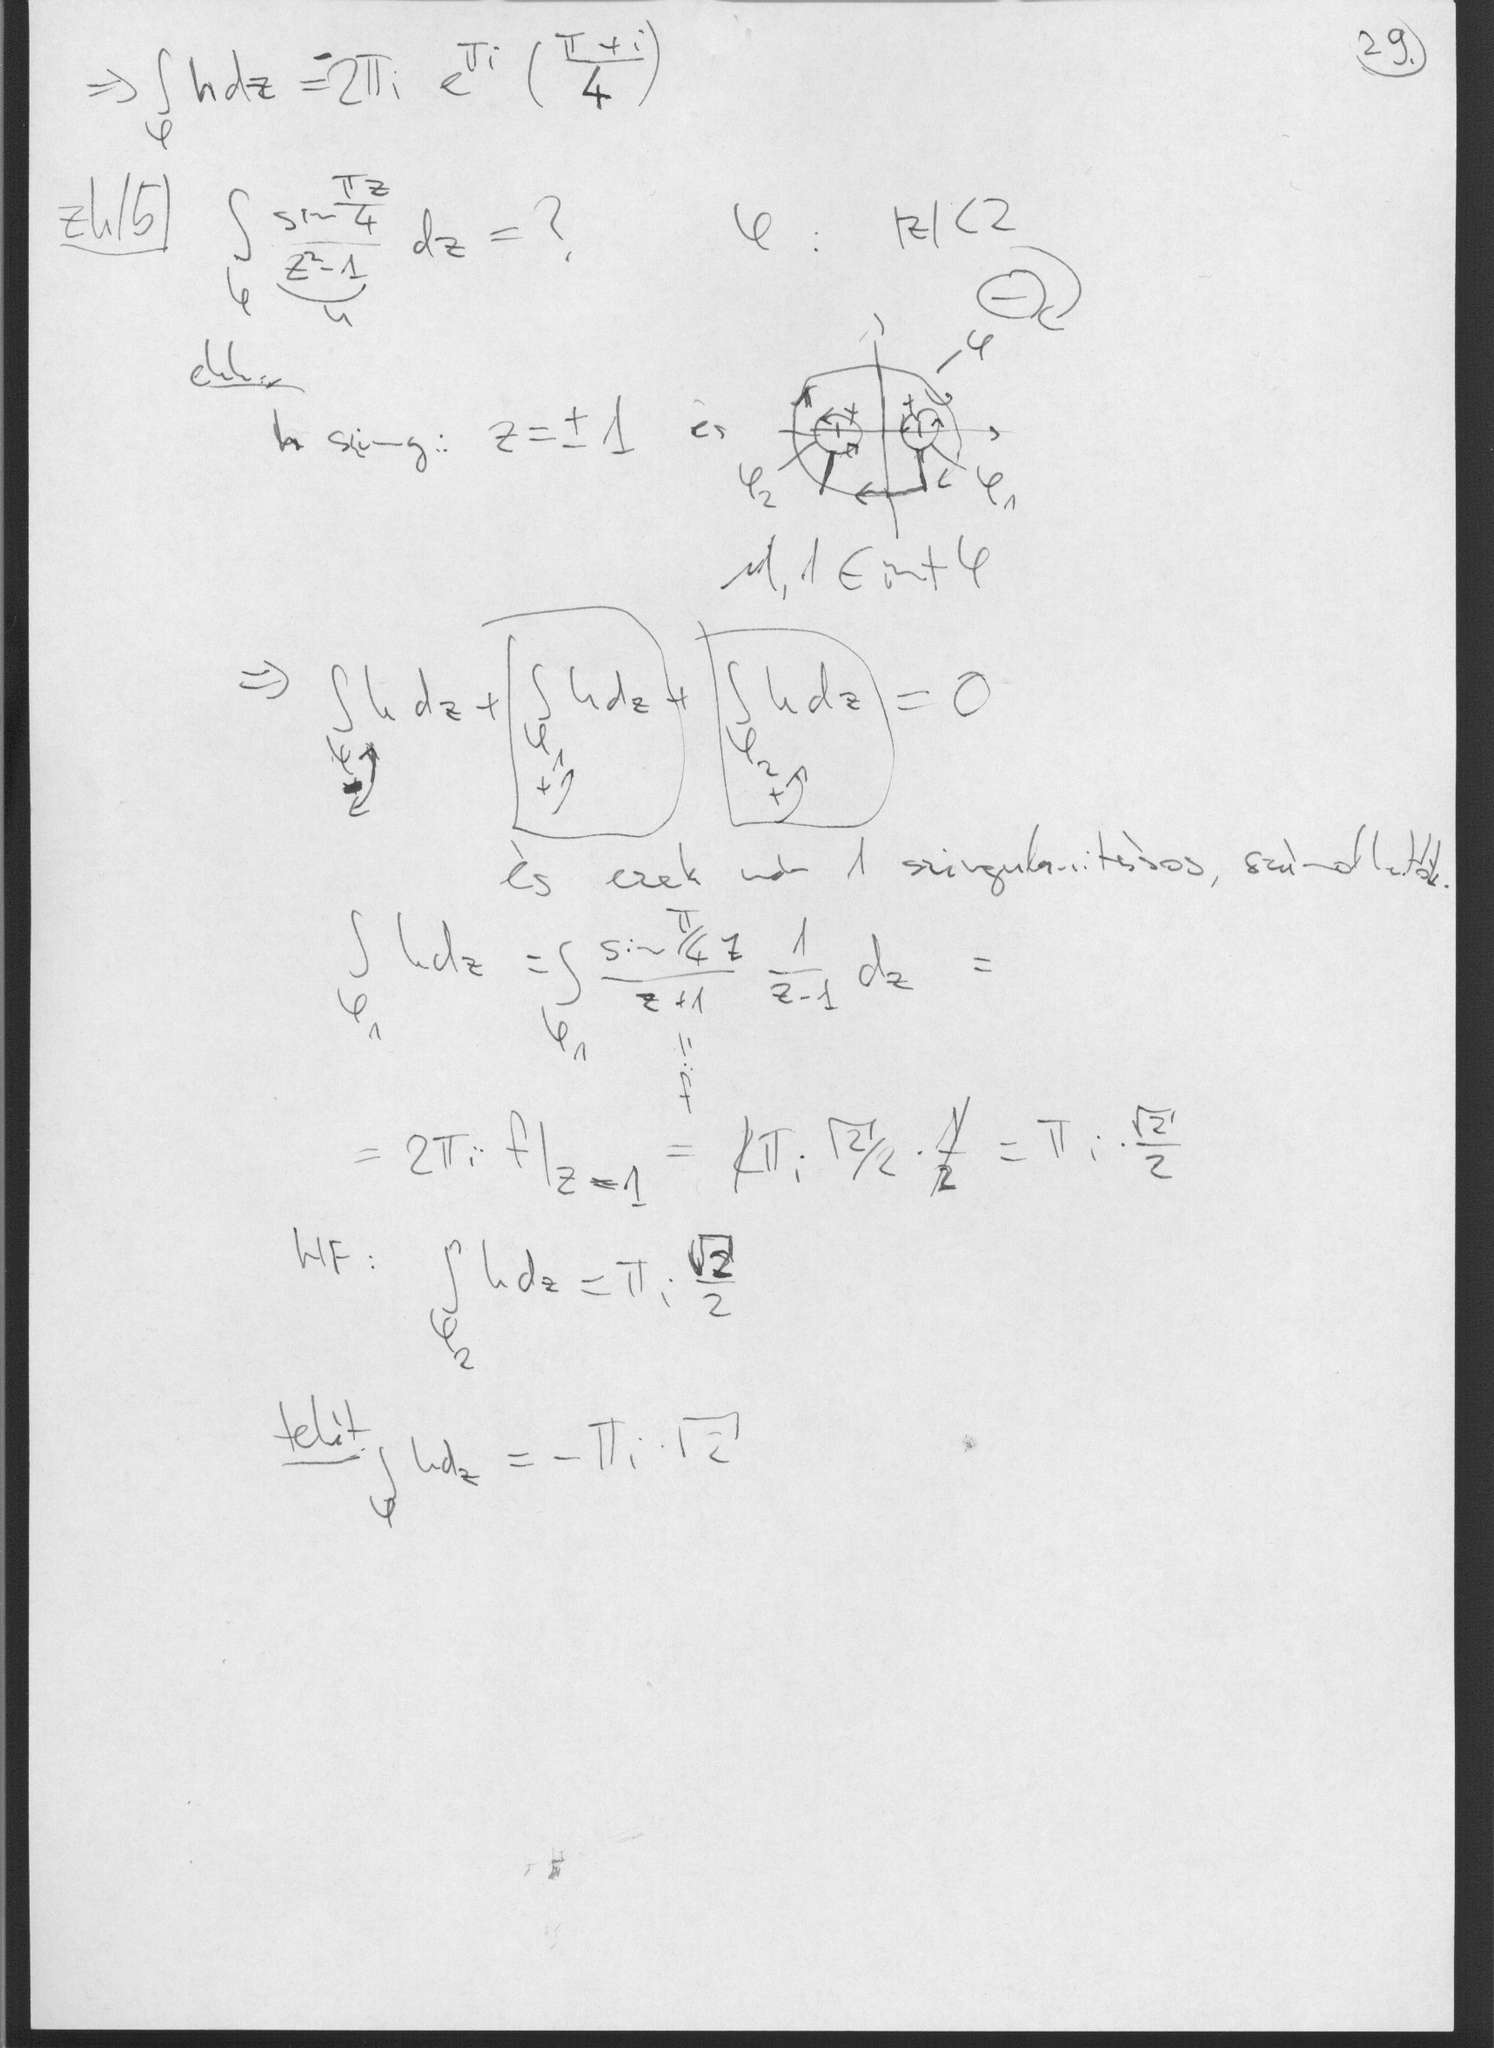 29.
⇒ ∫φ h dz = -2πi e^{πi} (π+i / 4)
zh/5 ∫φ sin(πz/4) / (z²-1) dz = ? φ : |z|<2
h
h szing.: z = ±1 és
φ
φ₂ φ₁
-1, 1 ∈ int φ
⇒ ∫φ h dz + ∫φ₁ h dz + ∫φ₂ h dz = 0
és ezek már 1 szingularitásos, számolhatók.
∫φ₁ h dz = ∫φ₁ sin(π/4 z) / (z+1) 1/(z-1) dz =
=: f
= 2πi f|z=1 = 2πi √2/2 · 1/2 = πi · √2/2
HF: ∫φ₂ h dz = πi √2/2
tehát ∫φ h dz = -πi · √2